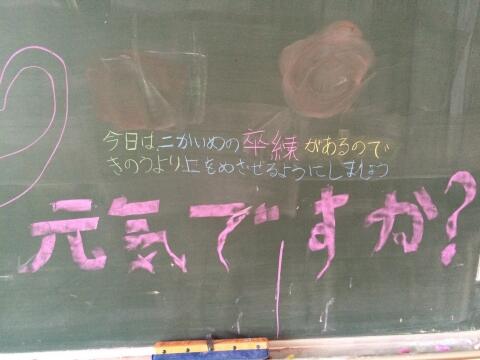 今日は二かいめの卒練があるので
きのうより上をめざせるようにしましょう
元気ですか?